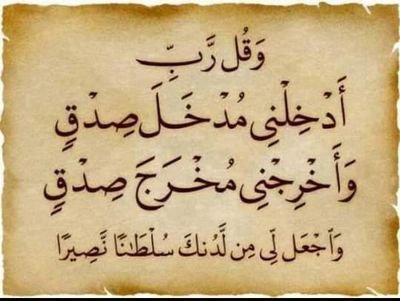 وَقُل رَّبِّ
أَدْخِلْنِى مُدْخَلَ صِدْقٍ
وَأَخْرِجْنِى مُخْرَجَ صِدْقٍ
وَاجْعَل لِّى مِن لَّدُنكَ سُلْطَـٰنًا نَّصِيرًا